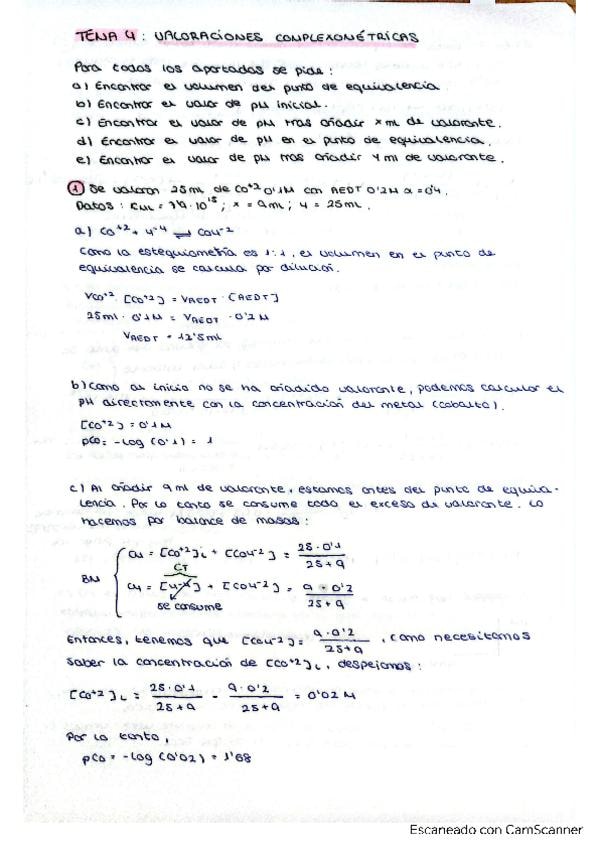 TEMA 4: VALORACIONES COMPLEXOMÉTRICAS
Para todos los apartados se pide:
a) Encontrar el volumen del punto de equivalencia.
b) Encontrar el valor de pM inicial.
c) Encontrar el valor de pM tras añadir x ml de valorante.
d) Encontrar el valor de pM en el punto de equivalencia.
e) Encontrar el valor de pM tras añadir y ml de valorante.
① Se valoran 25mL de Co+2 0'1M con AEDT 0'2M α=0'4.
x = 9mL; y = 25mL.
a) Co+2 + Y-4 ⇌ CoY-2
Como la estequiometría es 1:1, el volumen en el punto de
equivalencia se calcula por dilución.
VCo+2 · [Co+2] = VAEDT · [AEDT]
25ml · 0'1M = VAEDT · 0'2M
VAEDT = 12'5mL
b) Como al inicio no se ha añadido valorante, podemos calcular el
pM directamente con la concentración del metal (cobalto).
[Co+2] = 0'1M
pCo = -log (0'1) = 1
c) Al añadir 9 ml de valorante, estamos antes del punto de equiva-
lencia. Por lo tanto se consume todo el exceso de valorante. Lo
hacemos por balance de masas:
BM
CM = [Co+2]L + [CoY-2] = 25·0'1 / 25+9
CT
CY = [Y-4] + [CoY-2] = 9·0'2 / 25+9
se consume
Entonces, tenemos que [CoY-2] = 9·0'2 / 25+9, como necesitamos
saber la concentración de [Co+2]L, despejamos:
[Co+2]L = 25·0'1 / 25+9 - 9·0'2 / 25+9 = 0'02 M
Por lo tanto,
pCo = -log (0'02) = 1'68
Escaneado con CamScanner